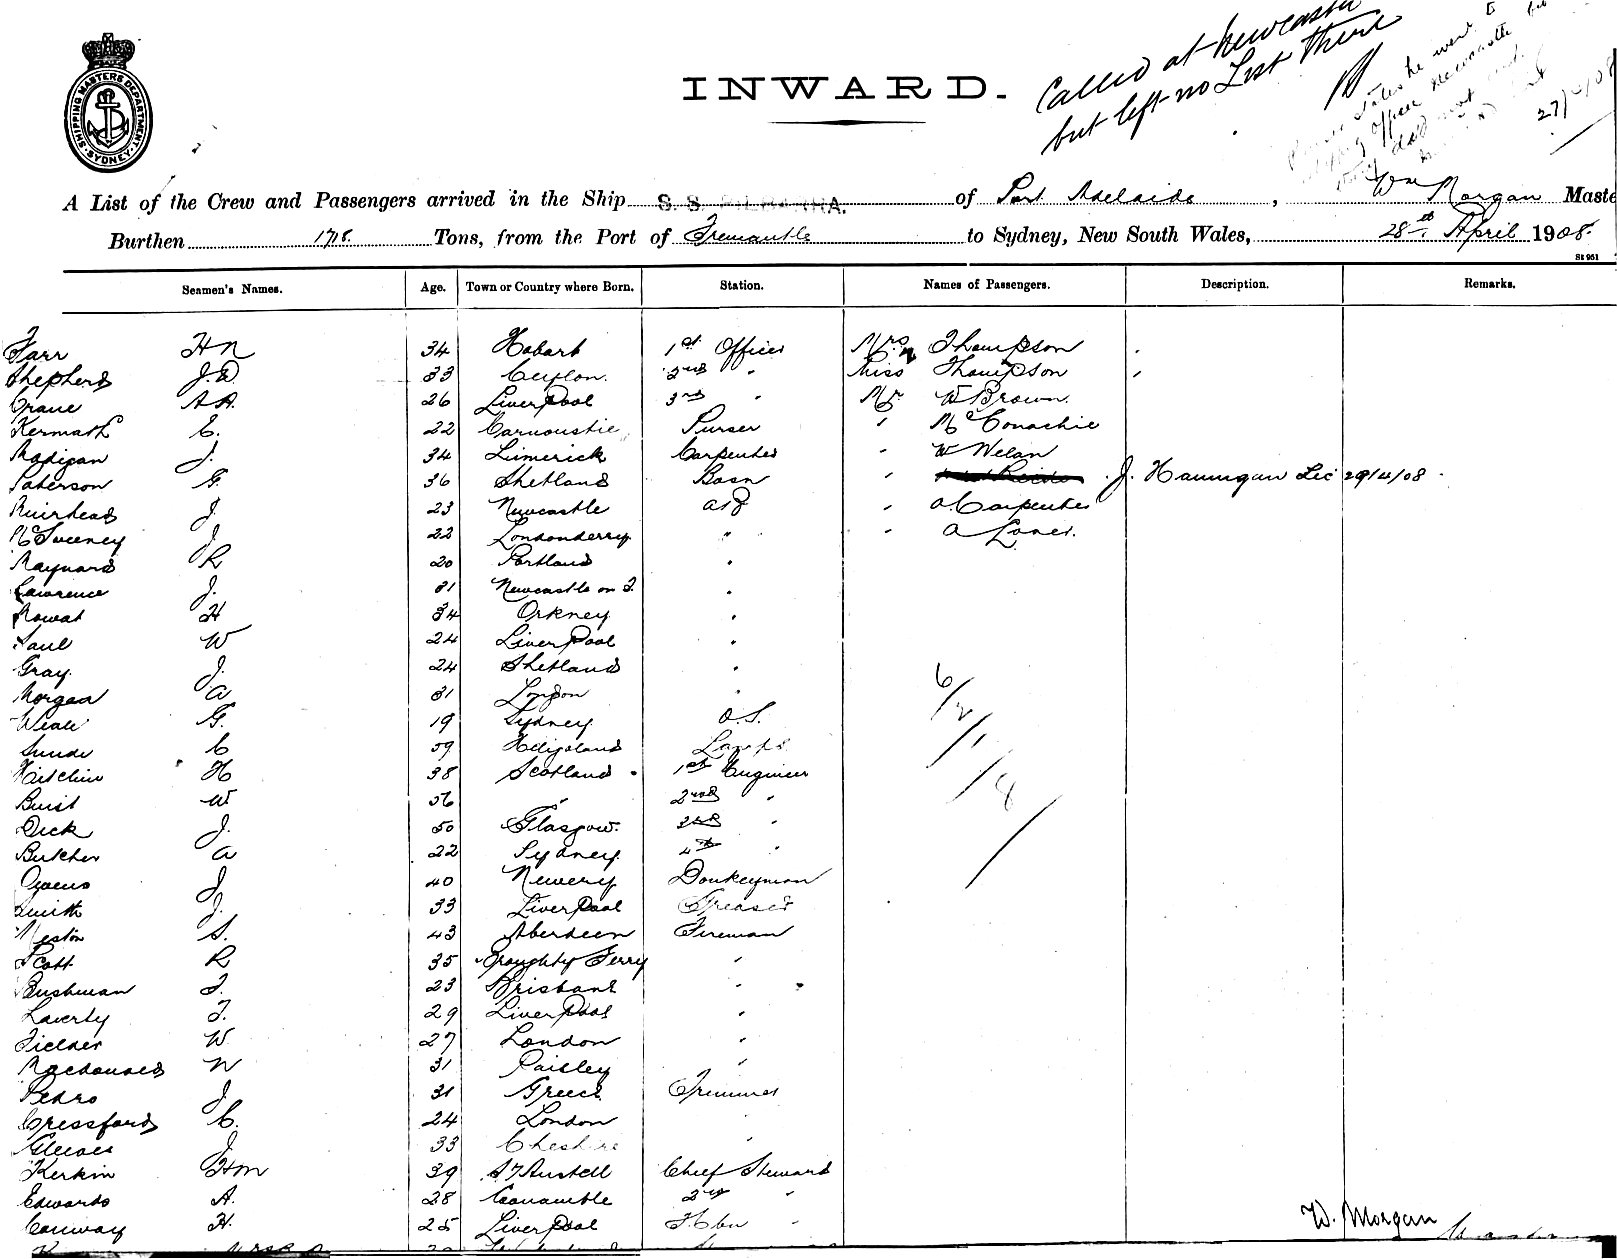 SHIPPING MASTERS DEPARTMENT. SYDNEY.
INWARD.
Called at Newcastle
but left no List there
27/4/08
A List of the Crew and Passengers arrived in the Ship S. S. of Port Adelaide, Wm Morgan Maste
Burthen 1718. Tons, from the Port of Fremantle to Sydney, New South Wales, 28th April 1908.
St 951
Seamen's Names. Age. Town or Country where Born. Station. Names of Passengers. Description. Remarks.
Farr H N 34 Hobart 1st Officer Mrs Thompson
Shepherd J. D. 33 Ceylon. 2nd " Miss Thompson
Crane A A. 26 Liverpool 3rd " Mr W Brown.
Kermath C. 22 Carnoustie Purser " McConachie
Madigan J. 34 Limerick Carpenter " W Welan
Paterson G. 36 Shetland Bosn " J. Hannigan Lic 29/4/08
Muirhead J 23 Newcastle A B " A Carpenter
McSweeney J 22 Londonderry " " A Lones.
Maynard R 20 Portland "
Lawrence J. 31 Newcastle on T. "
Mowat H 34 Orkney "
Paul W 24 Liverpool "
Gray. J. 24 Shetland "
Morgan A 31 London "
Weale G. 19 Sydney O.S.
Sunde C 59 Heligoland Lamps
Kitchin H 38 Scotland 1st Engineer
Buist W 56 " 2nd "
Dick J. 50 Glasgow. 3rd "
Butcher A 22 Sydney 4th "
Owens J 40 Newery Donkeyman
Smith J. 33 Liverpool Greaser
Meston S. 43 Aberdeen Fireman
Scott R 35 Broughty Ferry "
Bushman T. 23 Brisbane "
Laverty T. 29 Liverpool "
Fielder W 27 London "
Macdonald N 31 Paisley "
Pedro J 31 Greece Trimmer
Cressford C. 24 London
Gleeves J 33 Cheshire "
Kerkin H M 39 St Austell Chief Steward
Edwards A. 28 Coonamble 2nd "
Conway H. 25 Liverpool F. Cbn "
6/2/1/8/
W. Morgan